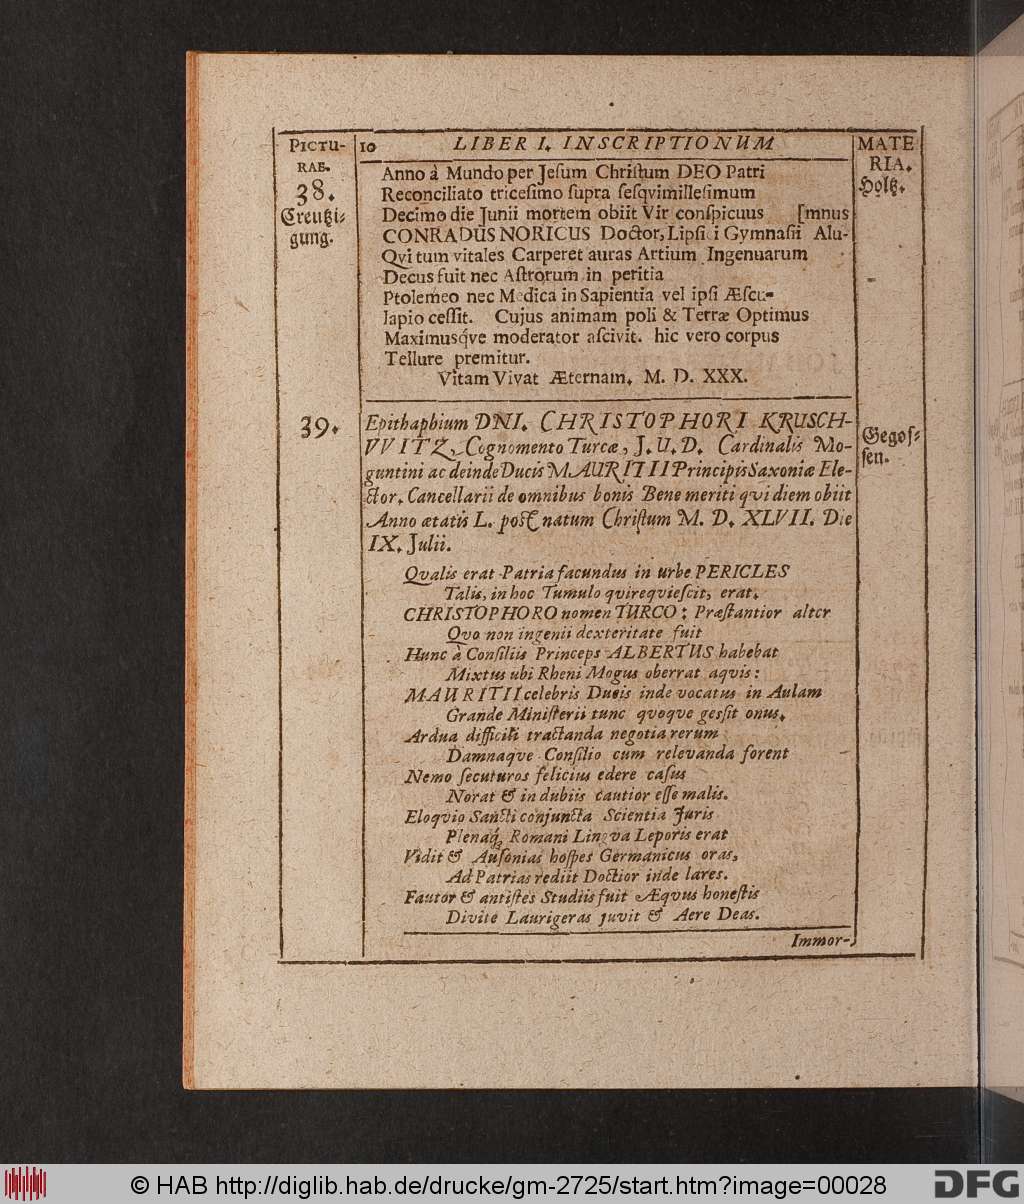 PICTU-
RAE.
10 LIBER I. INSCRIPTIONUM
MATE
RIA.
38.
Creutzi-
gung.
Holtz.
Anno à Mundo per Jesum Christum DEO Patri
Reconciliato tricesimo supra sesqvimillesimum
Decimo die Junii mortem obiit Vir conspicuus [mnus
CONRADUS NORICUS Doctor, Lipsici Gymnasii Alu-
Qvi tum vitales Carperet auras Artium Ingenuarum
Decus fuit nec Astrorum in peritia
Ptolemeo nec Medica in Sapientia vel ipsi Æscu-
lapio cessit. Cujus animam poli & Terræ Optimus
Maximusq́ve moderator ascivit. hic vero corpus
Tellure premitur.
Vitam Vivat Æternam. M. D. XXX.
39.
Gegos-
sen.
Epithaphium DNI. CHRISTOPHORI KRUSCH-
VVITZ, Cognomento Turcæ, J. U. D. Cardinalis Mo-
guntini ac deinde Ducis MAURITII Principis Saxoniæ Ele-
ctor. Cancellarii de omnibus bonis Bene meriti qvi diem obiit
Anno ætatis L. post natum Christum M. D. XLVII. Die
IX. Julii.
Qvalis erat Patria facundus in urbe PERICLES
Talis, in hoc Tumulo qvi reqviescit, erat.
CHRISTOPHORO nomen TURCO: Præstantior alter
Qvo non ingenii dexteritate fuit
Hunc à Consiliis Princeps ALBERTUS habebat
Mixtus ubi Rheni Mogus oberrat aqvis:
MAURITII celebris Ducis inde vocatus in Aulam
Grande Ministerii tunc qvoqve gessit onus.
Ardua difficili tractanda negotia rerum
Damnaqve Consilio cum relevanda forent
Nemo secuturos felicius edere casus
Norat & in dubiis cautior esse malis.
Eloqvio Sancti conjuncta Scientia Juris
Plenaq́; Romani Lingva Leporis erat
Vidit & Ausonias hospes Germanicus oras,
Ad Patrias rediit Doctior inde lares.
Fautor & antistes Studiis fuit Æqvus honestis
Divite Laurigeras juvit & Aere Deas.
Immor-
© HAB http://diglib.hab.de/drucke/gm-2725/start.htm?image=00028
DFG